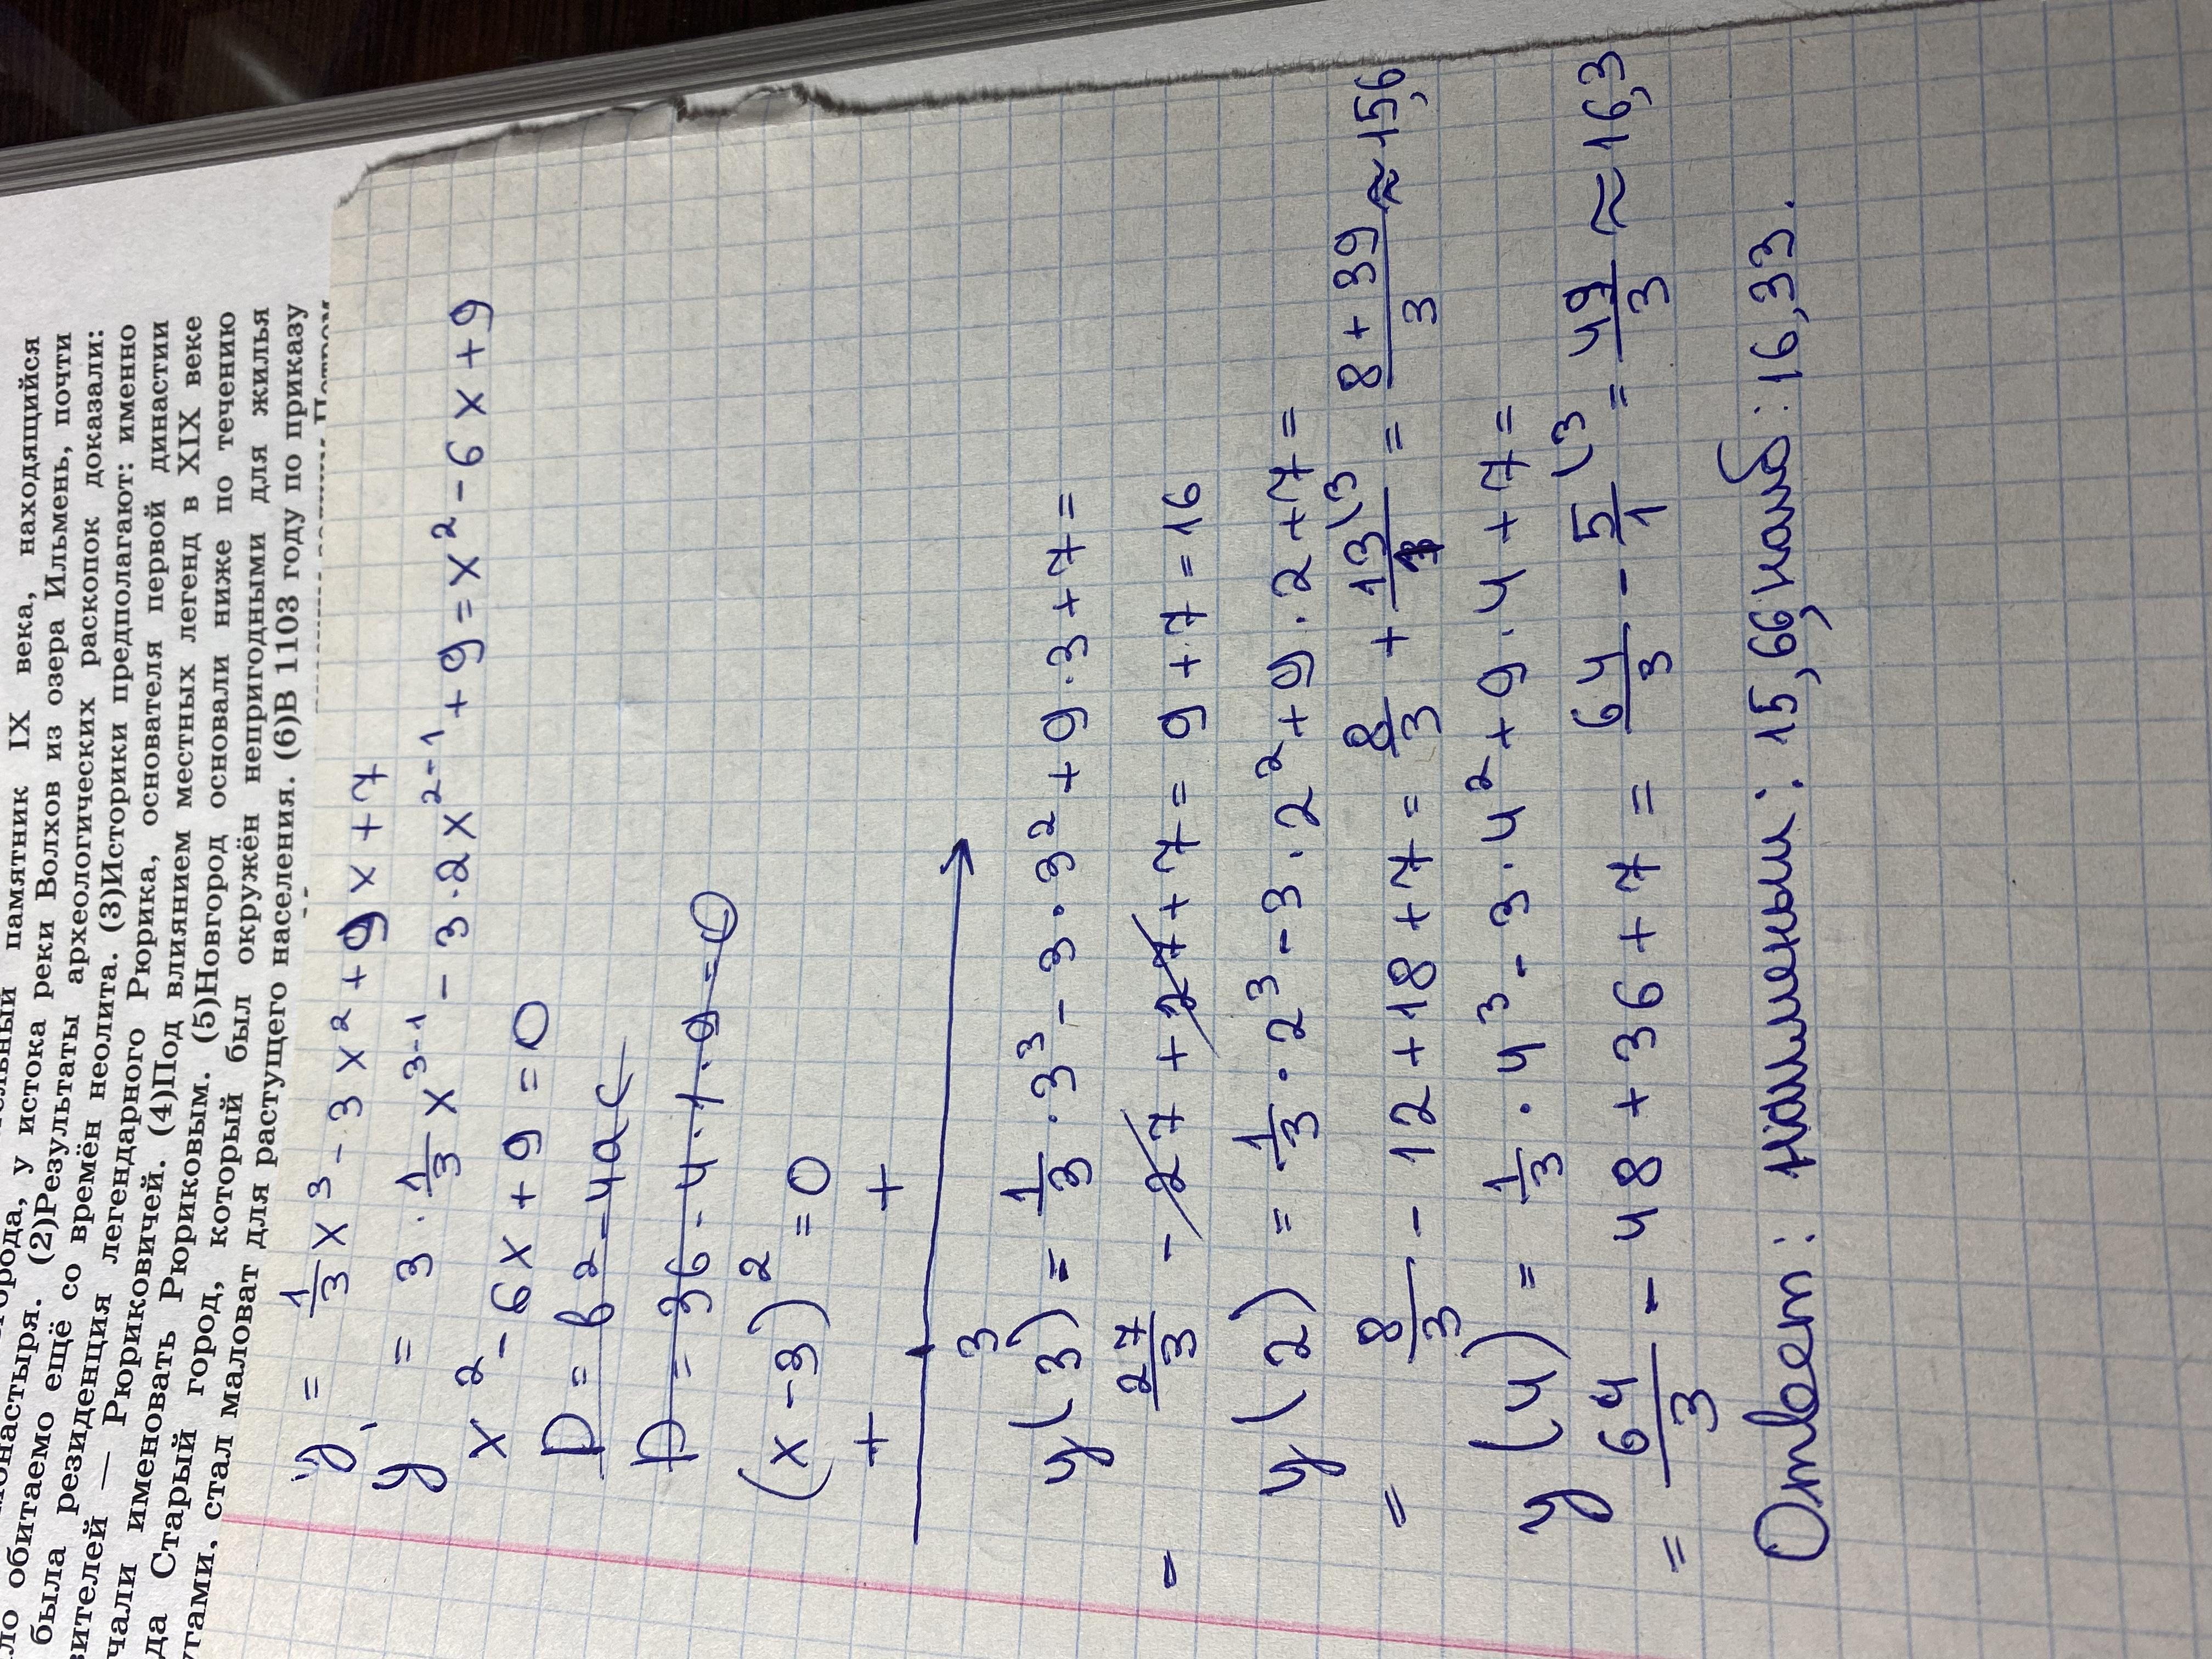 памятник IX века, находящийся
монастыря. (2)Результаты археологических раскопок доказали:
ло обитаемо ещё со времён неолита. (3)Историки предполагают: именно
была резиденция легендарного Рюрика, основателя первой династии
вителей — Рюриковичей. (4)Под влиянием местных легенд в XIX веке
чали именовать Рюриковым. (5)Новгород основали ниже по течению
да Старый город, который был окружён непригодными для жилья
угами, стал маловат для растущего населения. (6)В 1103 году по приказу
y = 1/3 x³ - 3x² + 9x + 7
y' = 3 · 1/3 x³⁻¹ - 3 · 2x²⁻¹ + 9 = x² - 6x + 9
x² - 6x + 9 = 0
D = b² - 4ac
D = 36 - 4 · 1 · 9 = 0
(x - 3)² = 0
+ +
3
y(3) = 1/3 · 3³ - 3 · 3² + 9 · 3 + 7 =
= 27/3 - 27 + 27 + 7 = 9 + 7 = 16
y(2) = 1/3 · 2³ - 3 · 2² + 9 · 2 + 7 =
= 8/3 - 12 + 18 + 7 = 8/3 + 13/1 (3 = 8 + 39/3 ≈ 15,6
y(4) = 1/3 · 4³ - 3 · 4² + 9 · 4 + 7 =
= 64/3 - 48 + 36 + 7 = 64/3 - 5/1 (3 = 49/3 ≈ 16,3
Ответ: наименьш: 15,66, наиб: 16,33.